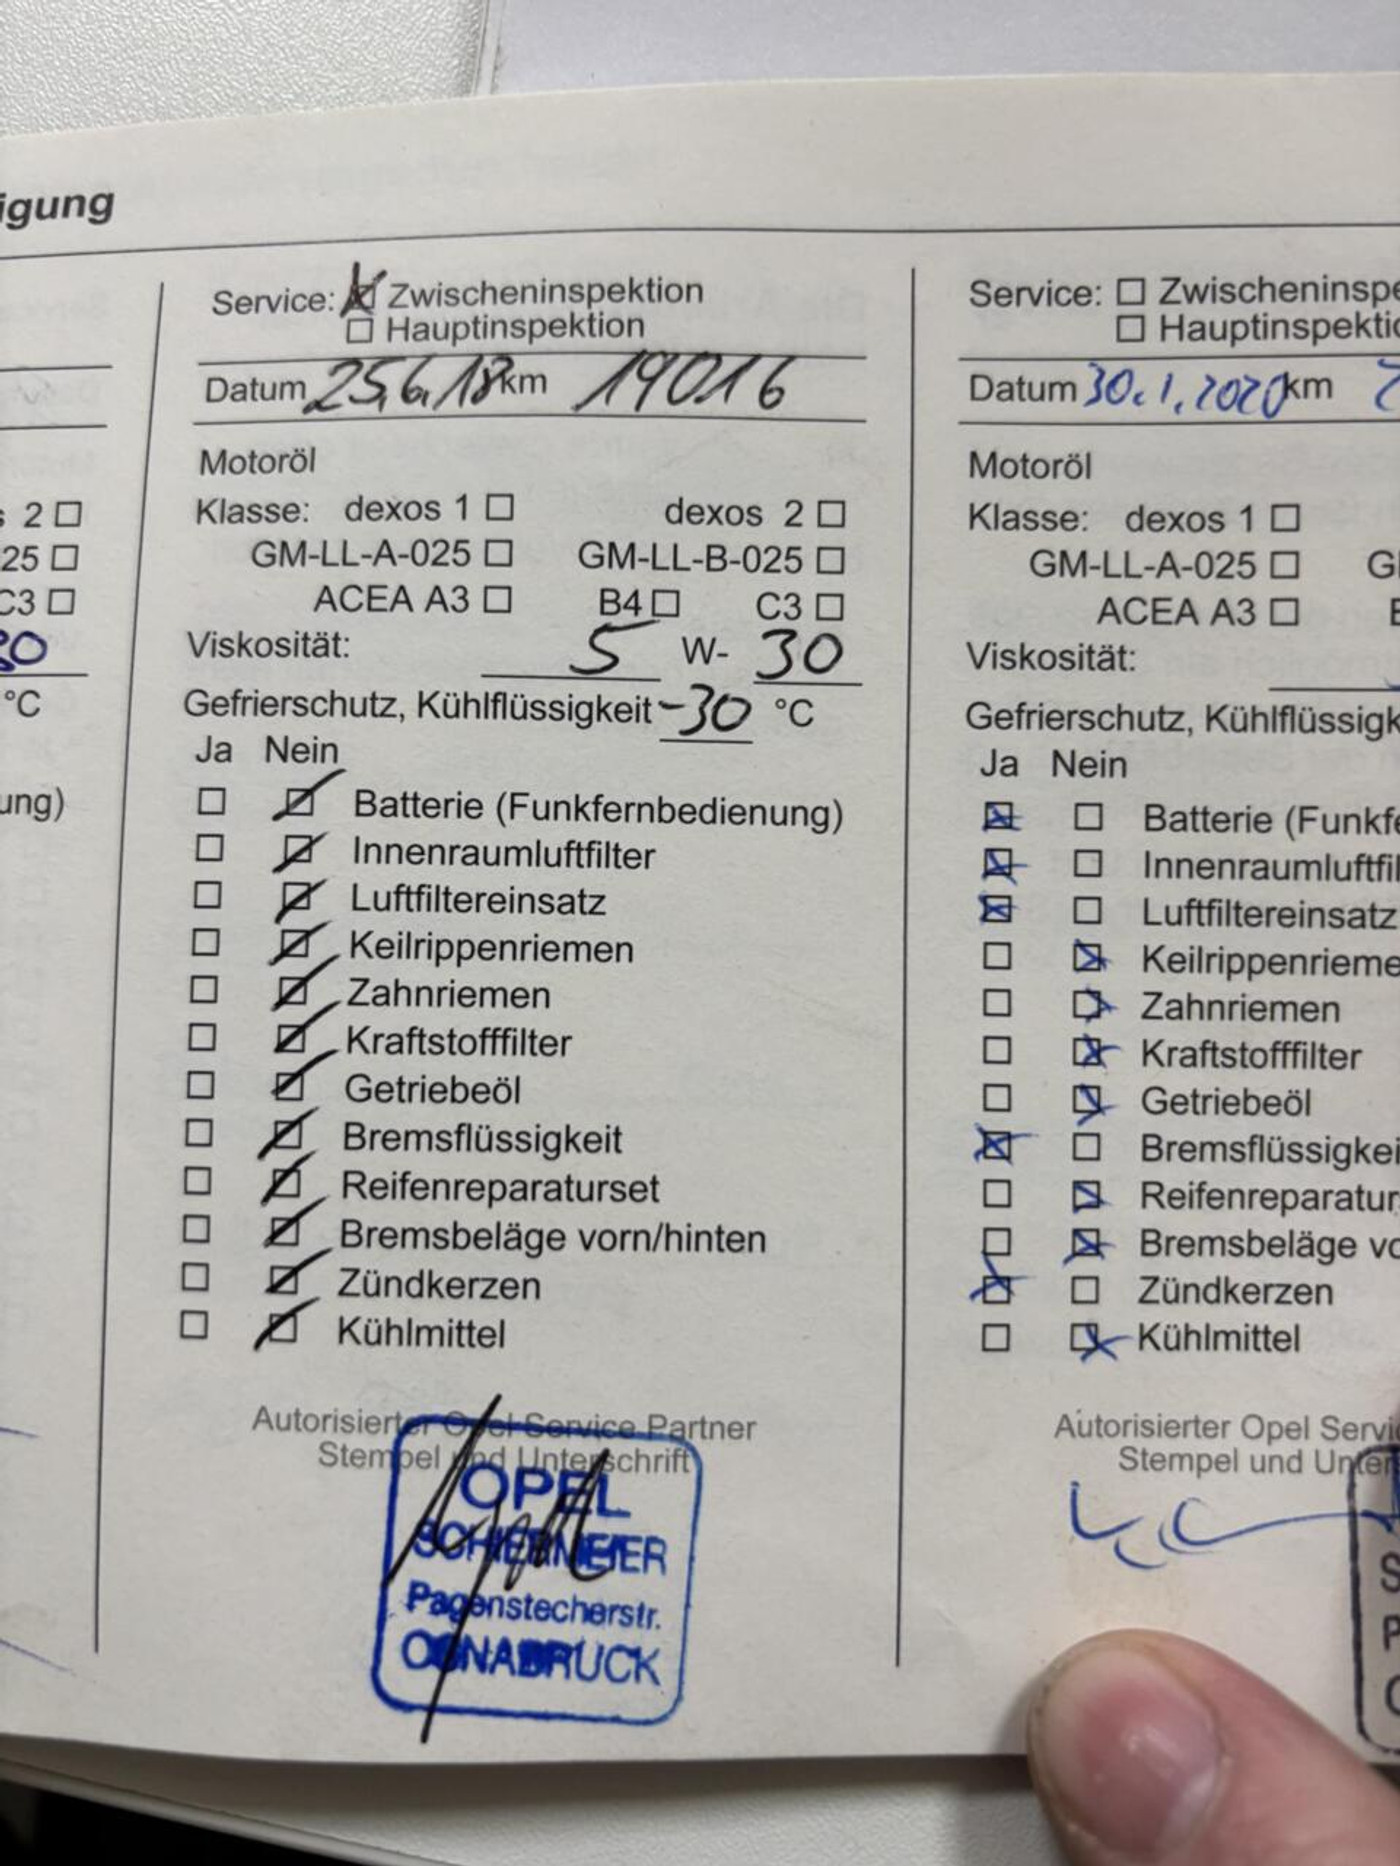 igung
s 2 ☐
25 ☐
C3 ☐
30
°C
ung)
Service: ☒ Zwischeninspektion
☐ Hauptinspektion
Datum 25.6.18 km 19016
Motoröl
Klasse: dexos 1 ☐ dexos 2 ☐
GM-LL-A-025 ☐ GM-LL-B-025 ☐
ACEA A3 ☐ B4 ☐ C3 ☐
Viskosität: 5 W- 30
Gefrierschutz, Kühlflüssigkeit -30 °C
Ja Nein
☐ ☒ Batterie (Funkfernbedienung)
☐ ☒ Innenraumluftfilter
☐ ☒ Luftfiltereinsatz
☐ ☒ Keilrippenriemen
☐ ☒ Zahnriemen
☐ ☒ Kraftstofffilter
☐ ☒ Getriebeöl
☐ ☒ Bremsflüssigkeit
☐ ☒ Reifenreparaturset
☐ ☒ Bremsbeläge vorn/hinten
☐ ☒ Zündkerzen
☐ ☒ Kühlmittel
Autorisierter Opel Service Partner
Stempel und Unterschrift
OPEL
SCHIERMEIER
Pagenstecherstr.
OSNABRÜCK
Service: ☐ Zwischeninspe
☐ Hauptinspektio
Datum 30.1.2020 km
Motoröl
Klasse: dexos 1 ☐
GM-LL-A-025 ☐ G
ACEA A3 ☐
Viskosität:
Gefrierschutz, Kühlflüssigk
Ja Nein
☒ ☐ Batterie (Funkfe
☒ ☐ Innenraumluftfil
☒ ☐ Luftfiltereinsatz
☐ ☒ Keilrippenrieme
☐ ☒ Zahnriemen
☐ ☒ Kraftstofffilter
☐ ☒ Getriebeöl
☒ ☐ Bremsflüssigkei
☐ ☒ Reifenreparatur
☐ ☒ Bremsbeläge vo
☒ ☐ Zündkerzen
☐ ☒ Kühlmittel
Autorisierter Opel Servi
Stempel und Unter
S
P